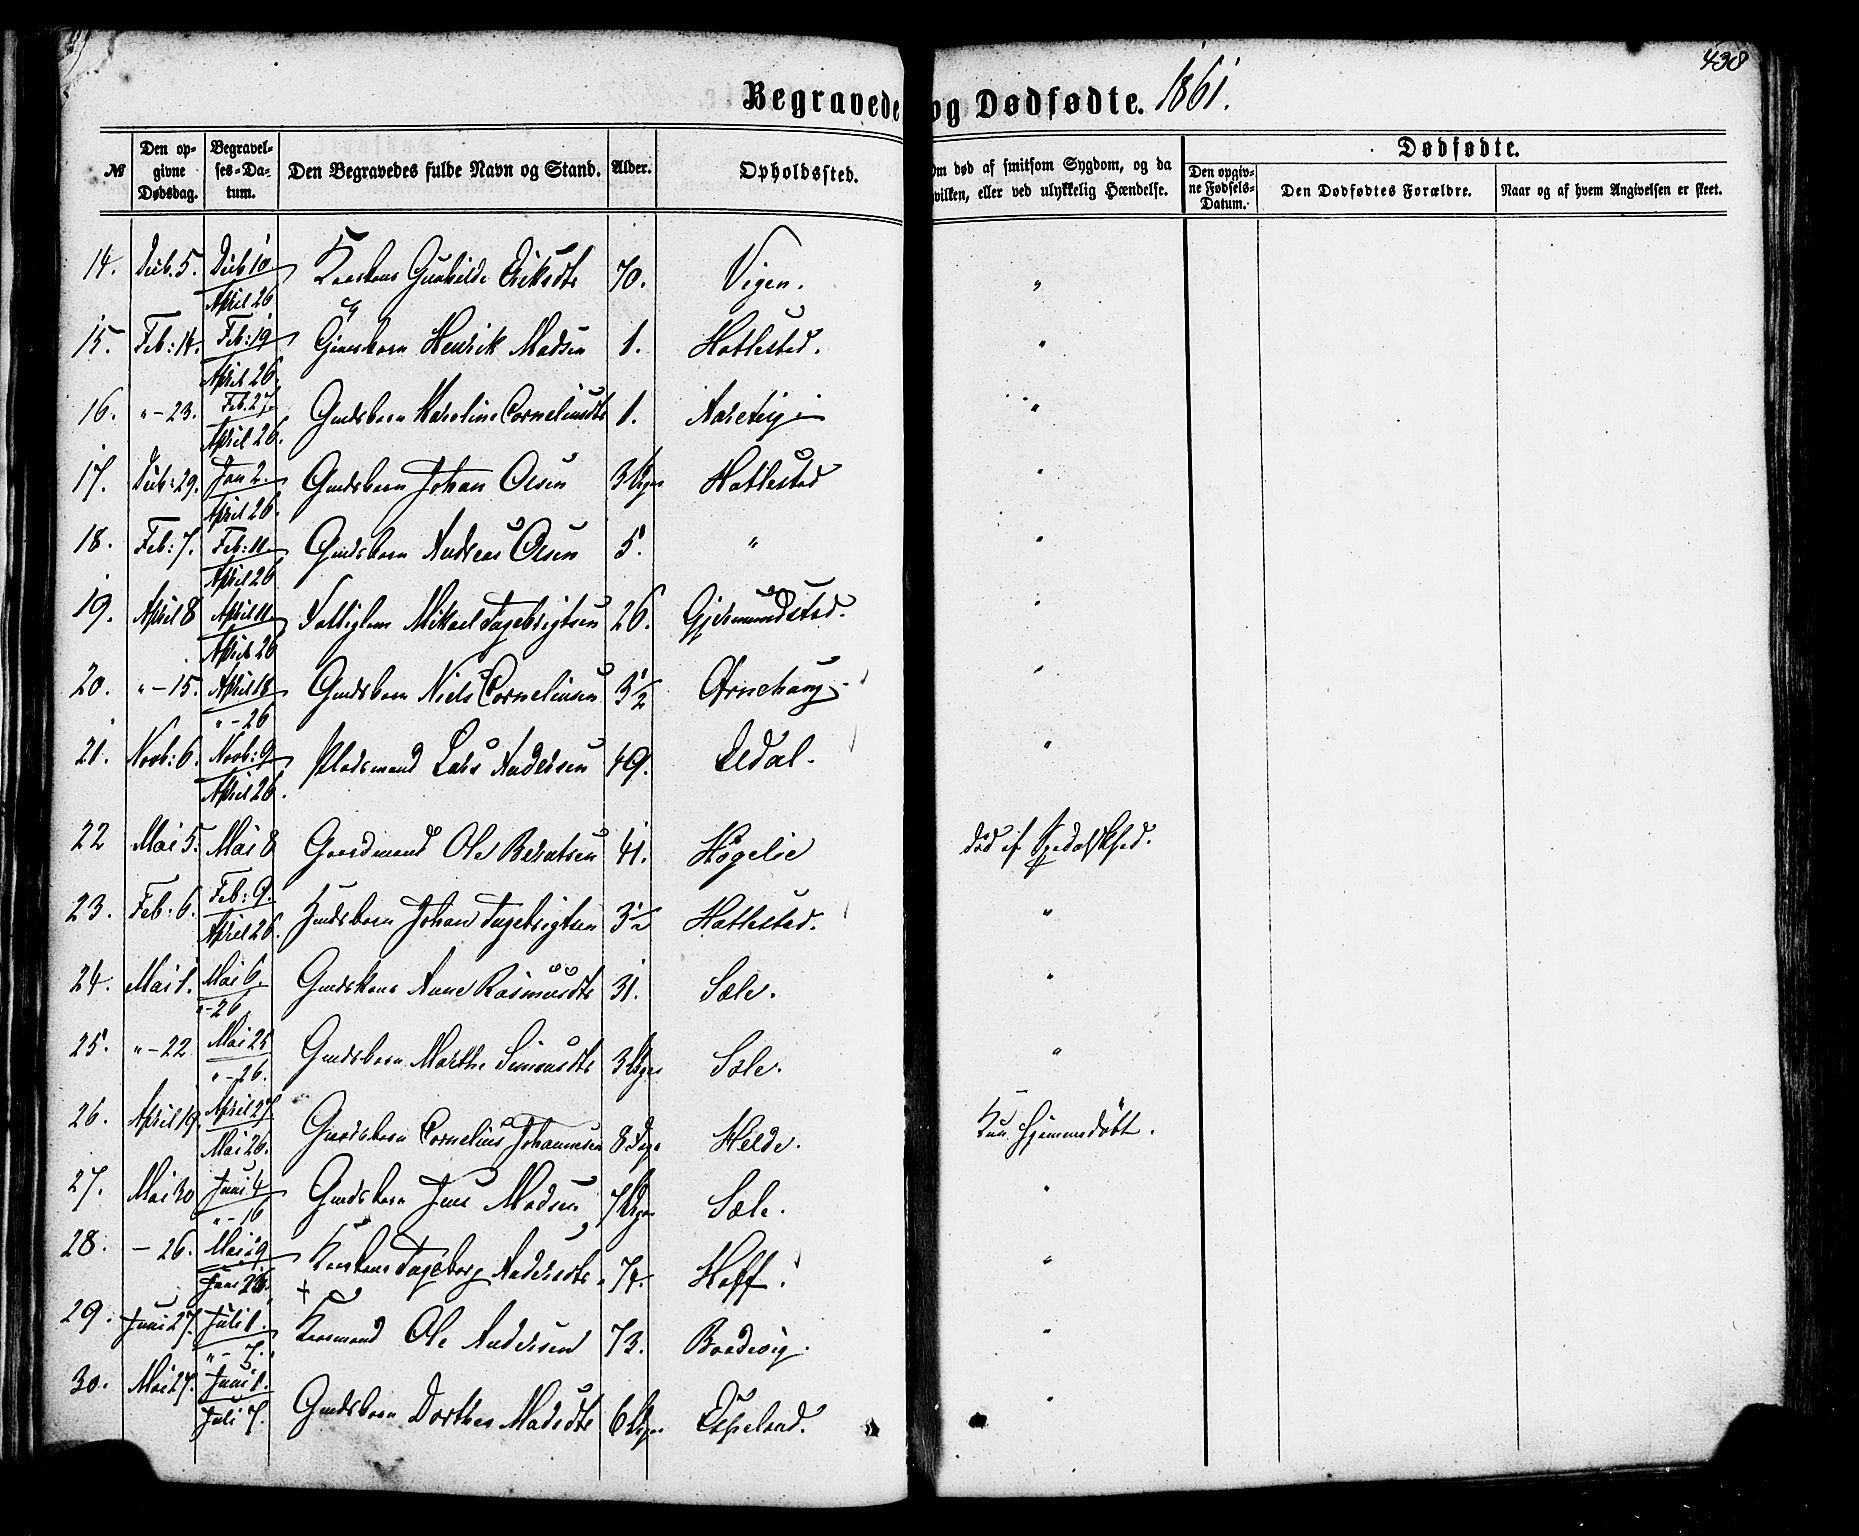 438
Begravede og Dødfødte. 1861.
№ Den opgivne Dødsdag. Begravelses-Datum. Den Begravedes fulde Navn og Stand. Alder. Opholdssted. Om død af smitsom Sygdom, og da hvilken, eller ved ulykkelig Hændelse. Dødfødte.
Den opgivne Fødsels-Datum. Den Dødfødtes Forældre. Naar og af hvem Angivelsen er skeet.
14. 5. 10 April 26 Gunhilde Eriksdtr 70. Vigen. "
15. Feb: 14. Feb: 19 April 26 Henrik Madsen 1. Hatlestad. "
16. " - 23. Feb. 27 April 26. Gmdsbarn Karoline Corneliusdtr 1. "
17. 29. Jan 2. April 26. Gmdsbarn Johan Olsen 3 Uger Hatlestad "
18. Feb: 7. Feb: 11 April 26 Gmdsbarn Andreas Olsen 5. " "
19. April 8 April 11 April 26 Fattiglem Mikael Ingebrigtsen 26. Gjermundstad. "
20. " - 15. April 18 " - 26 Gmdsbarn Niels Corneliusen 3 1/2 "
21. Novb: 6. Novb: 9 April 26. Pladsmand Lars Andersen 49. Eldal. "
22 Mai 5. Mai 8 Gaardmand Ole Berntsen 41. Høgelie død af Spedalskhed.
23. Feb: 6. Feb: 9. April 26. Johan Ingebrigtsen 3 1/2 Hatlestad. "
24. Mai 1. Mai 6. " - 26 Gmdskone Anne Rasmusdtr 31. Sæle. "
25. " - 22 Mai 25 " - 26. Gmdsbarn Marthe Simonsdtr 3 Uger Sæle. "
26. April 19 April 27 Mai 26. Gmdsbarn Cornelius Johannesen 8 Dage Helde. Kun hjemmedøbt.
27. Mai 30 Juni 4 " - 16 Gmdsbarn Jens Madsen 7 Uger Sæle. "
28. - 26. Mai 29 Juni 26. Ingeborg Andersdtr 74. Hoff. "
29. Juni 27. Juli 1. " - 7. + Kaarmand Ole Andersen 73. "
30. Mai 27. Juni 1. Juli 7. Gmdsbarn Dorthea Madsdtr 6 Uger Espeland. "